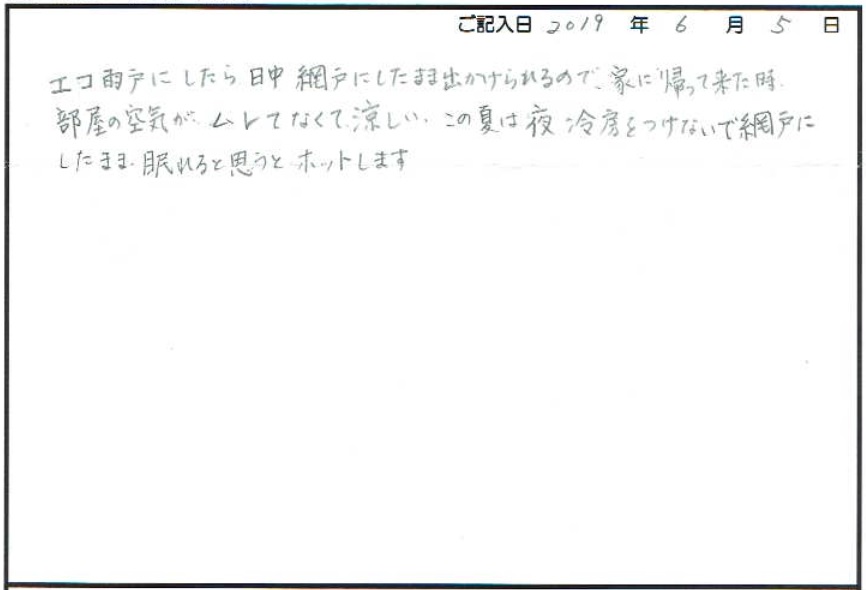 ご記入日 2019 年 6 月 5 日
エコ雨戸にしたら日中網戸にしたまま出かけられるので、家に帰って来た時
部屋の空気が、ムレてなくて涼しい、この夏は夜冷房をつけないで網戸に
したまま、眠れると思うとホットします